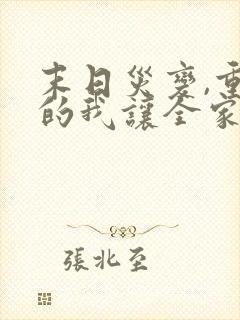 末日災變,重
的我讓全家
張北至